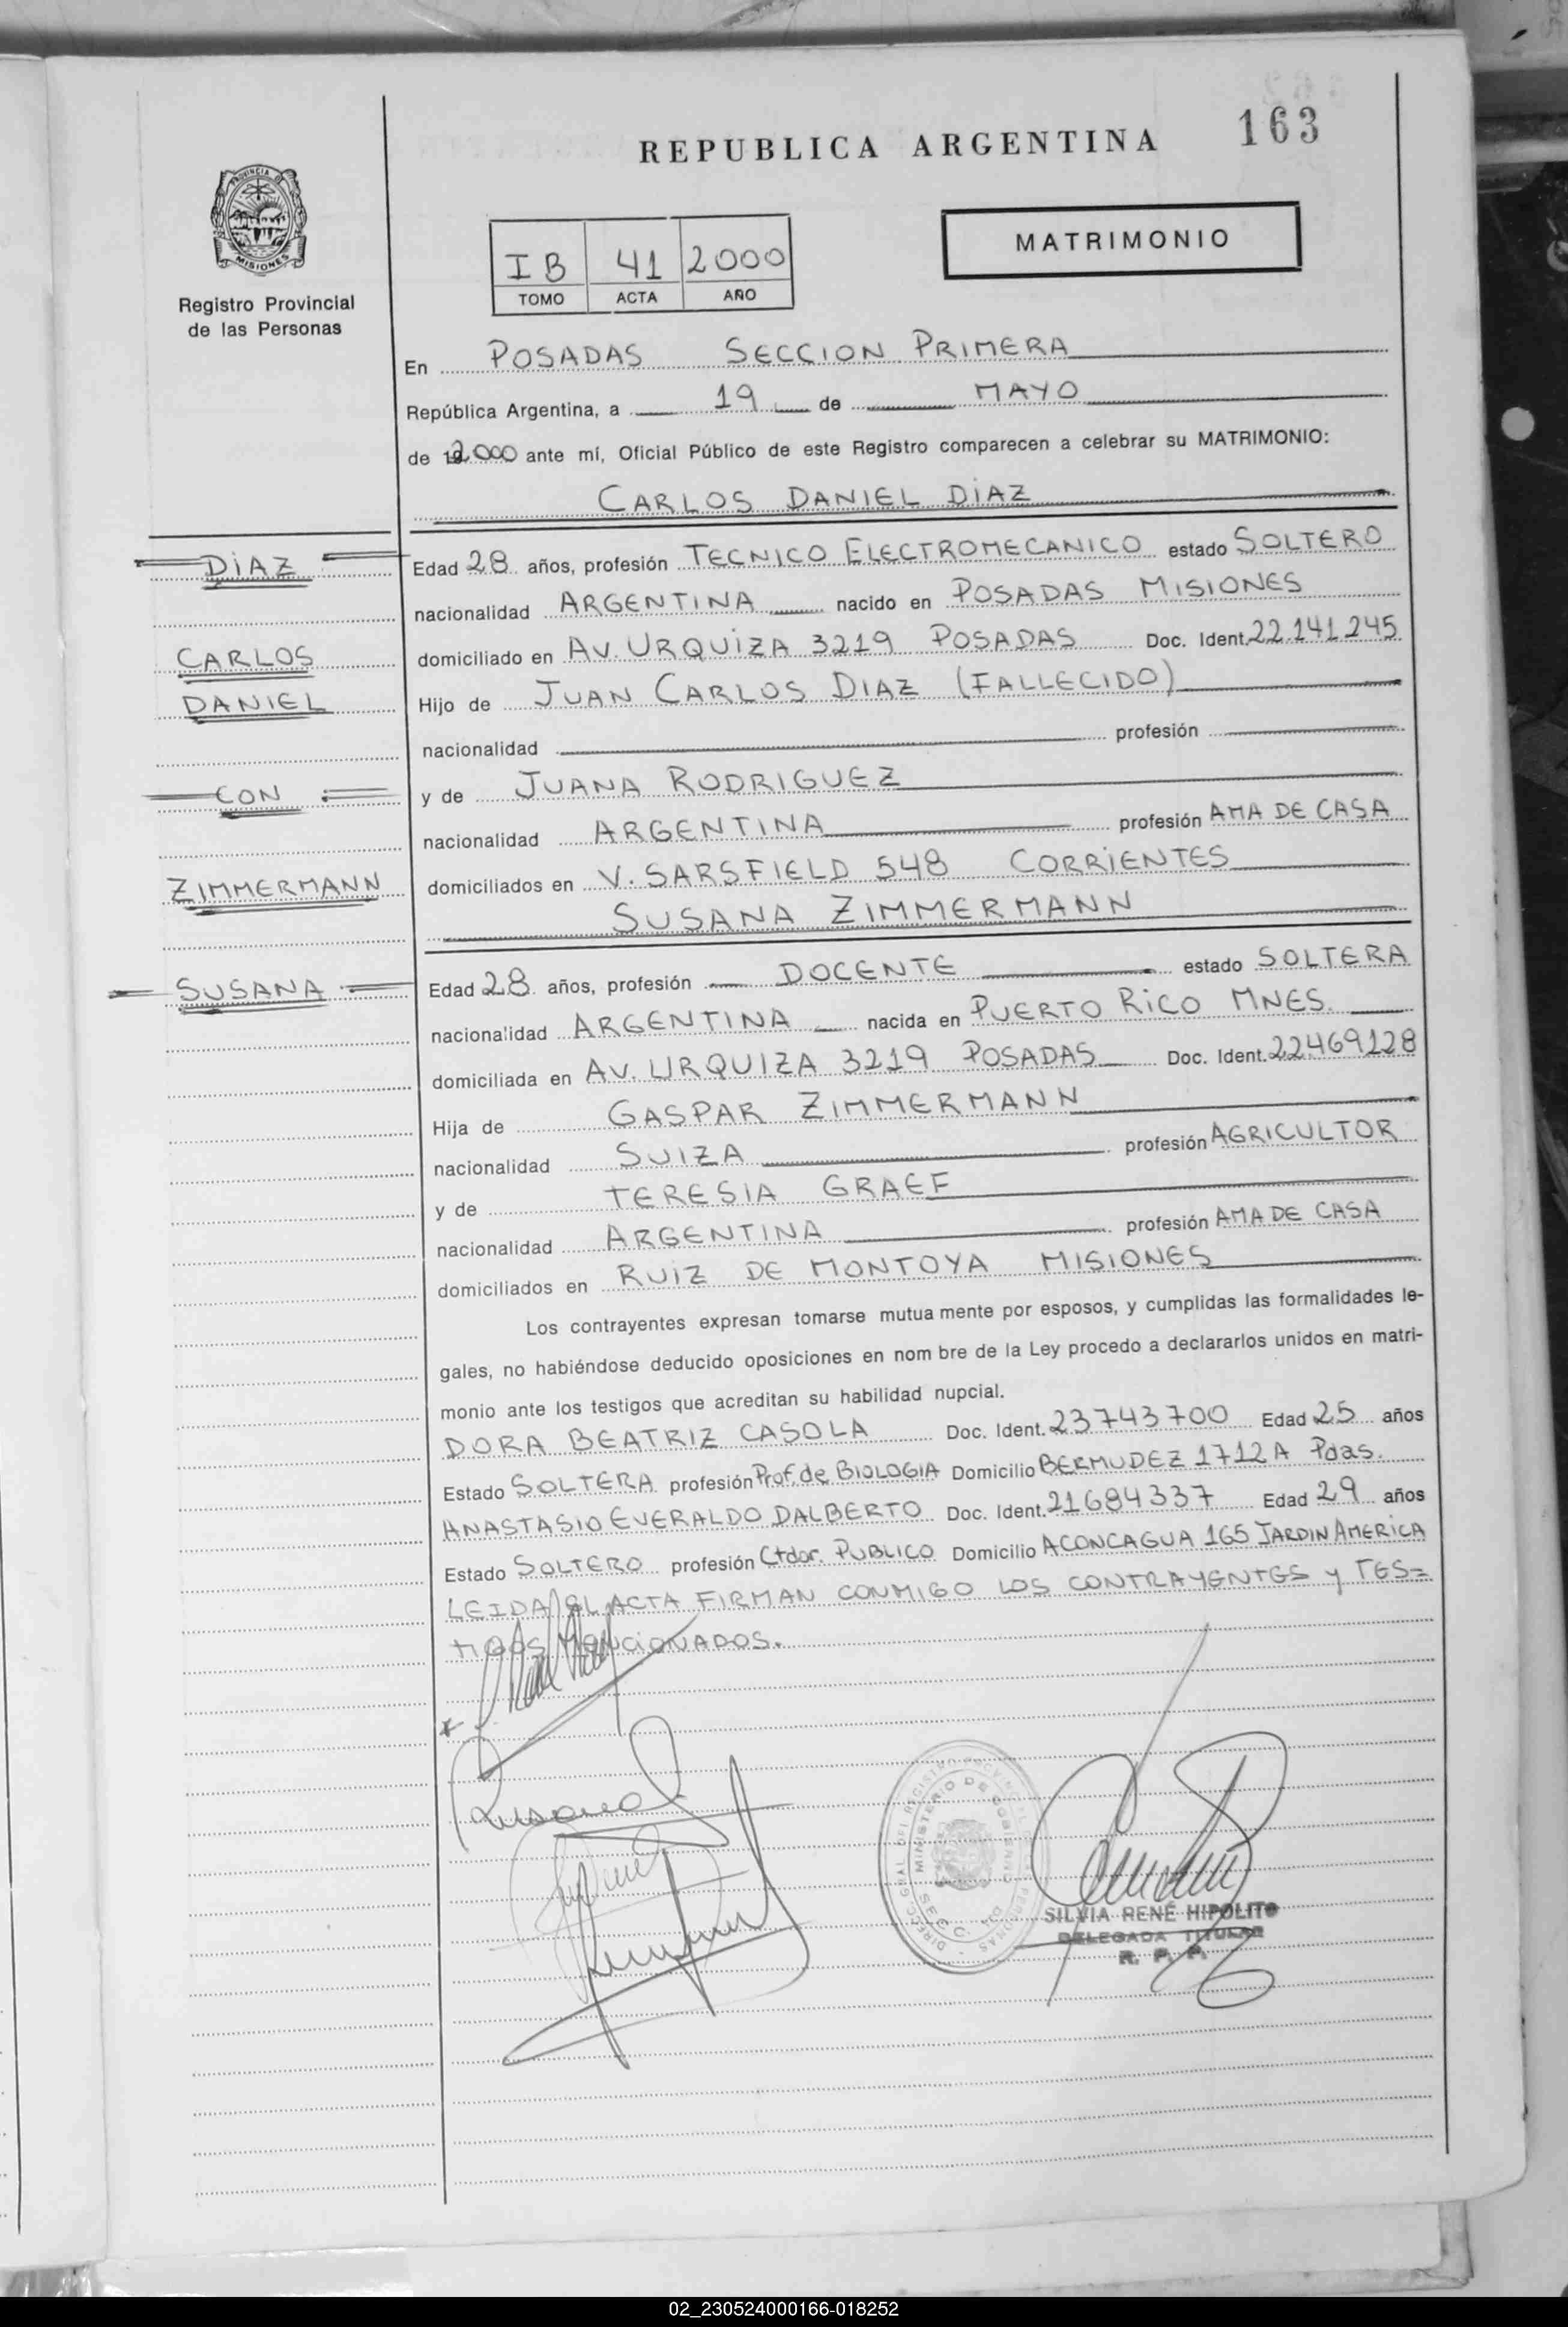 REPUBLICA ARGENTINA 163
PROVINCIA DE
MISIONES
Registro Provincial
de las Personas
MATRIMONIO
IB 41 2000
TOMO ACTA AÑO
En POSADAS SECCION PRIMERA
República Argentina, a 19 de MAYO
de 2000 ante mí, Oficial Público de este Registro comparecen a celebrar su MATRIMONIO:
CARLOS DANIEL DIAZ
DIAZ
CARLOS
DANIEL
CON
ZIMMERMANN
SUSANA
Edad 28 años, profesión TECNICO ELECTROMECANICO estado SOLTERO
nacionalidad ARGENTINA nacido en POSADAS MISIONES
domiciliado en AV. URQUIZA 3219 POSADAS Doc. Ident. 22.141.245
Hijo de JUAN CARLOS DIAZ (FALLECIDO)
nacionalidad profesión
y de JUANA RODRIGUEZ
nacionalidad ARGENTINA profesión AMA DE CASA
domiciliados en V. SARSFIELD 548 CORRIENTES
SUSANA ZIMMERMANN
Edad 28 años, profesión DOCENTE estado SOLTERA
nacionalidad ARGENTINA nacida en PUERTO RICO MNES.
domiciliada en AV. URQUIZA 3219 POSADAS Doc. Ident. 22469128
Hija de GASPAR ZIMMERMANN
nacionalidad SUIZA profesión AGRICULTOR
y de TERESIA GRAEF
nacionalidad ARGENTINA profesión AMA DE CASA
domiciliados en RUIZ DE MONTOYA MISIONES
Los contrayentes expresan tomarse mutua mente por esposos, y cumplidas las formalidades le-
gales, no habiéndose deducido oposiciones en nom bre de la Ley procedo a declararlos unidos en matri-
monio ante los testigos que acreditan su habilidad nupcial.
DORA BEATRIZ CASOLA Doc. Ident. 23743700 Edad 25 años
Estado SOLTERA profesión Prof. de BIOLOGIA Domicilio BERMUDEZ 1712 A Pdas.
ANASTASIO EVERALDO DALBERTO Doc. Ident. 21684337 Edad 29 años
Estado SOLTERO profesión Ctdor. PUBLICO Domicilio ACONCAGUA 165 JARDIN AMERICA
LEIDA EL ACTA FIRMAN CONMIGO LOS CONTRAYENTES y TES=
TIGOS MENCIONADOS.
Susana
MINISTERIO DE GOBIERNO
SILVIA RENÉ HIPOLITO
DELEGADA TITULAR
R. P. P.
02_230524000166-018252